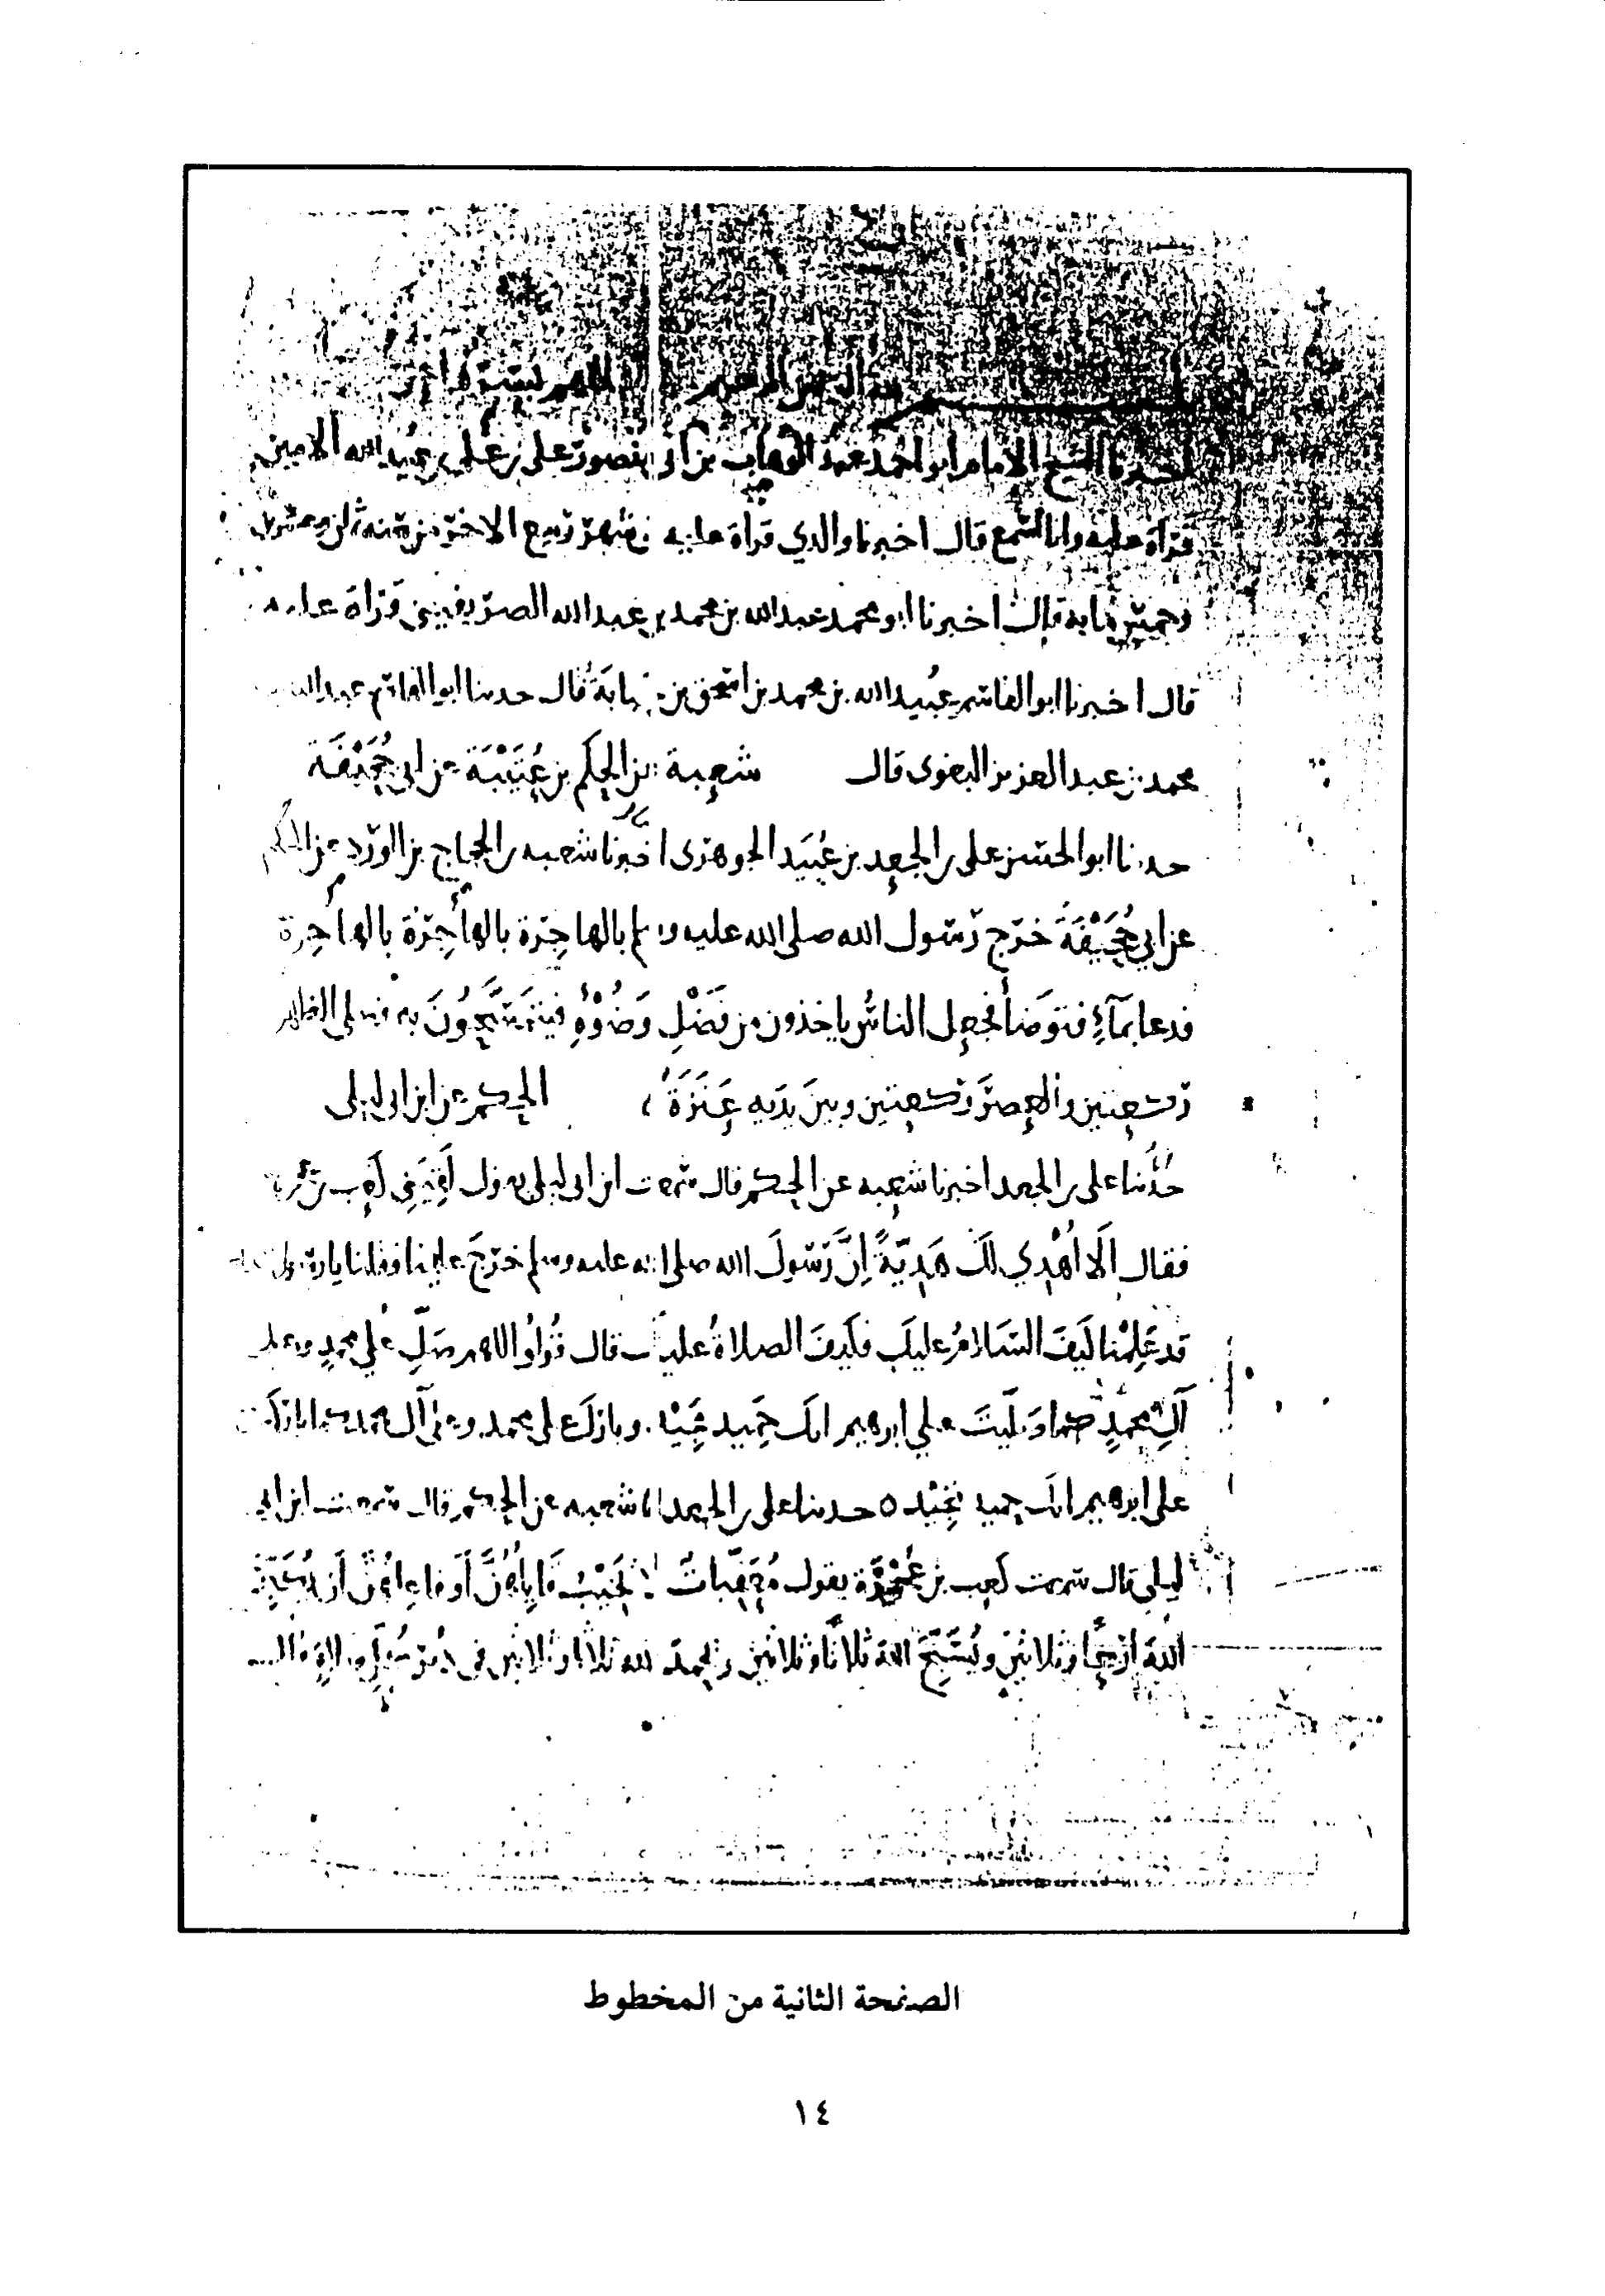 الرحمن الرحيم اللهم يسر
اخبرنا الشيخ الامام ابو احمد عبد الوهاب بن ابي منصور علي بن علي بن عبيد الله الامين
قراة عليه وانا اسمع قال اخبرنا والدي قراة عليه في شهر ربيع الاخر من سنة
وخمس مايه قال اخبرنا ابو محمد عبد الله بن محمد بن عبد الله الصريفيني قراة عليه
قال اخبرنا ابو القاسم عبيد الله بن محمد بن اسحق بن حبابة قال حدثنا ابو القاسم عبد الله
محمد بن عبد العزيز البغوى قال شعبة عن الحكم بن عُتَيْبَة عن ابي جُحَيْفَة
حدثنا ابو الحسن علي بن الجعد بن عُبَيد الجوهرى اخبرنا شعبه بن الحجاج بن الورد عن الحكم
عن ابي جُحَيْفَةَ خرج رسول الله صلى الله عليه وسلم بالهاجِرة بالهاجِرة بالهاجِرة
فدعا بمآءٍ فتوَضأ فجعل الناسُ ياخذون من فَضْلِ وَضُوْءِهِ فيَتَمَسَّحُونَ به فصلى الظهر
ركعتين والعصر ركعتين وبين يديه عَنَزَةٌ الحكم عن ابن ابى ليلى
حدَّثنا على بن الجعد اخبرنا شعبه عن الحكم قال سمعت ابن ابي ليلى يقول لَقِيَنِي كعب بن عجرة
فقال اَلا اُهْدِي لك هَدِيّةً اِنَّ رسولَ الله صلى الله عليه وسلم خرجَ علينا فقلنا يا رسول الله
قد عَلِمْنا كيفَ السَلامُ عليك فكيفَ الصلاةُ عليك قال قُولُوا اللهم صَلِّ على محمدٍ وعلى
آلِ محمدٍ كما صَلَّيتَ علي ابرهيم انك حَمِيد مَجِيْد وبارك على محمد وعلى آل محمد كما باركت
على ابرهيم انك حميد مَجِيْد ه حدثنا على بن الجعد انا شعبه عن الحكم قال سمعت ابن ابي
ليلى قال سمعت كعب بن عُجْرَة يقول مُعَقِّباتٌ لا يَخيْبُ قايلُهُنَّ اَو فاعِلُهُنَّ اَن يُكَبِّرَ
اللهَ اربعًا وثلاثين ويُسَبِّحَ الله ثلاثًا وثلاثين ويحمدَ الله ثلاثا وثلاثين في دُبُر
الصفحة الثانية من المخطوط
١٤